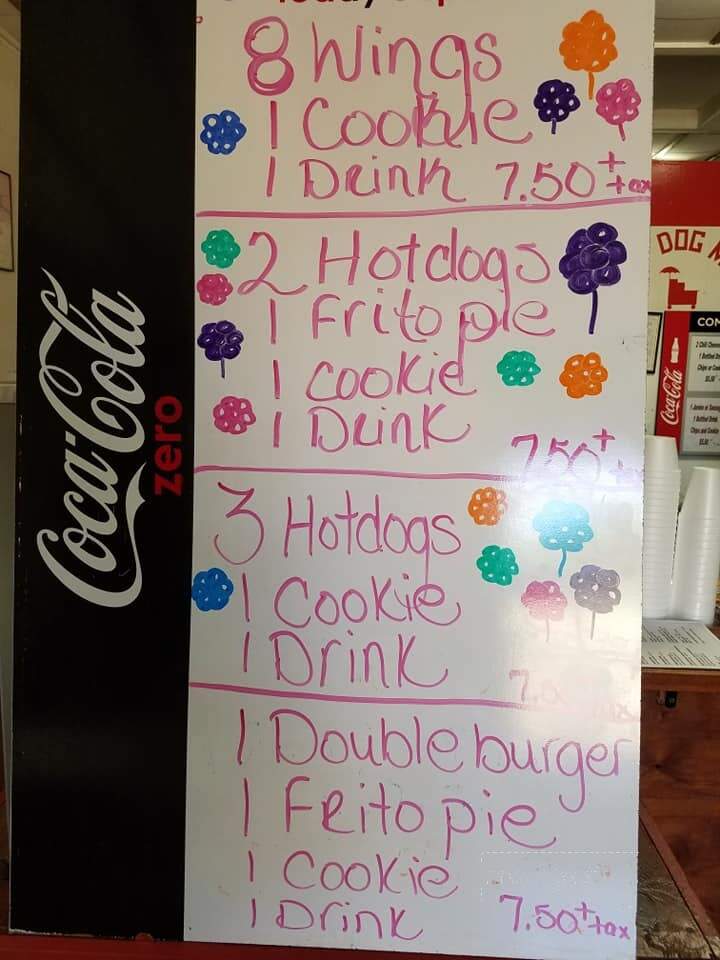 8 Wings
1 Cookie
1 Drink 7.50 + tax
2 Hotdogs
1 Frito pie
1 cookie
1 Drink
7.50 +
3 Hotdogs
1 Cookie
1 Drink
1 Double burger
1 Frito pie
1 Cookie
1 Drink 7.50 + tax
Coca-Cola
zero
DOG
Coca-Cola